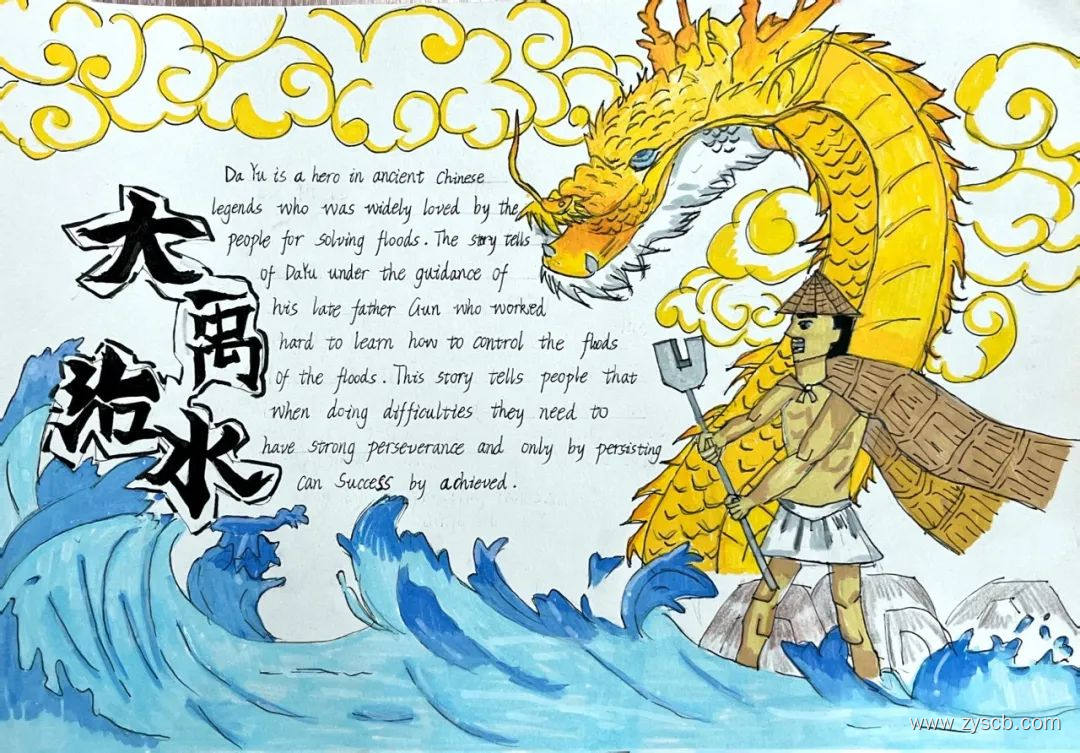 大禹治水
Da Yu is a hero in ancient Chinese
legends who was widely loved by the
people for solving floods. The story tells
of DaYu under the guidance of
his late father Gun who worked
hard to learn how to control the floods
of the floods. This story tells people that
when doing difficulties they need to
have strong perseverance and only by persisting
can Success by achieved.
www.zyscb.com